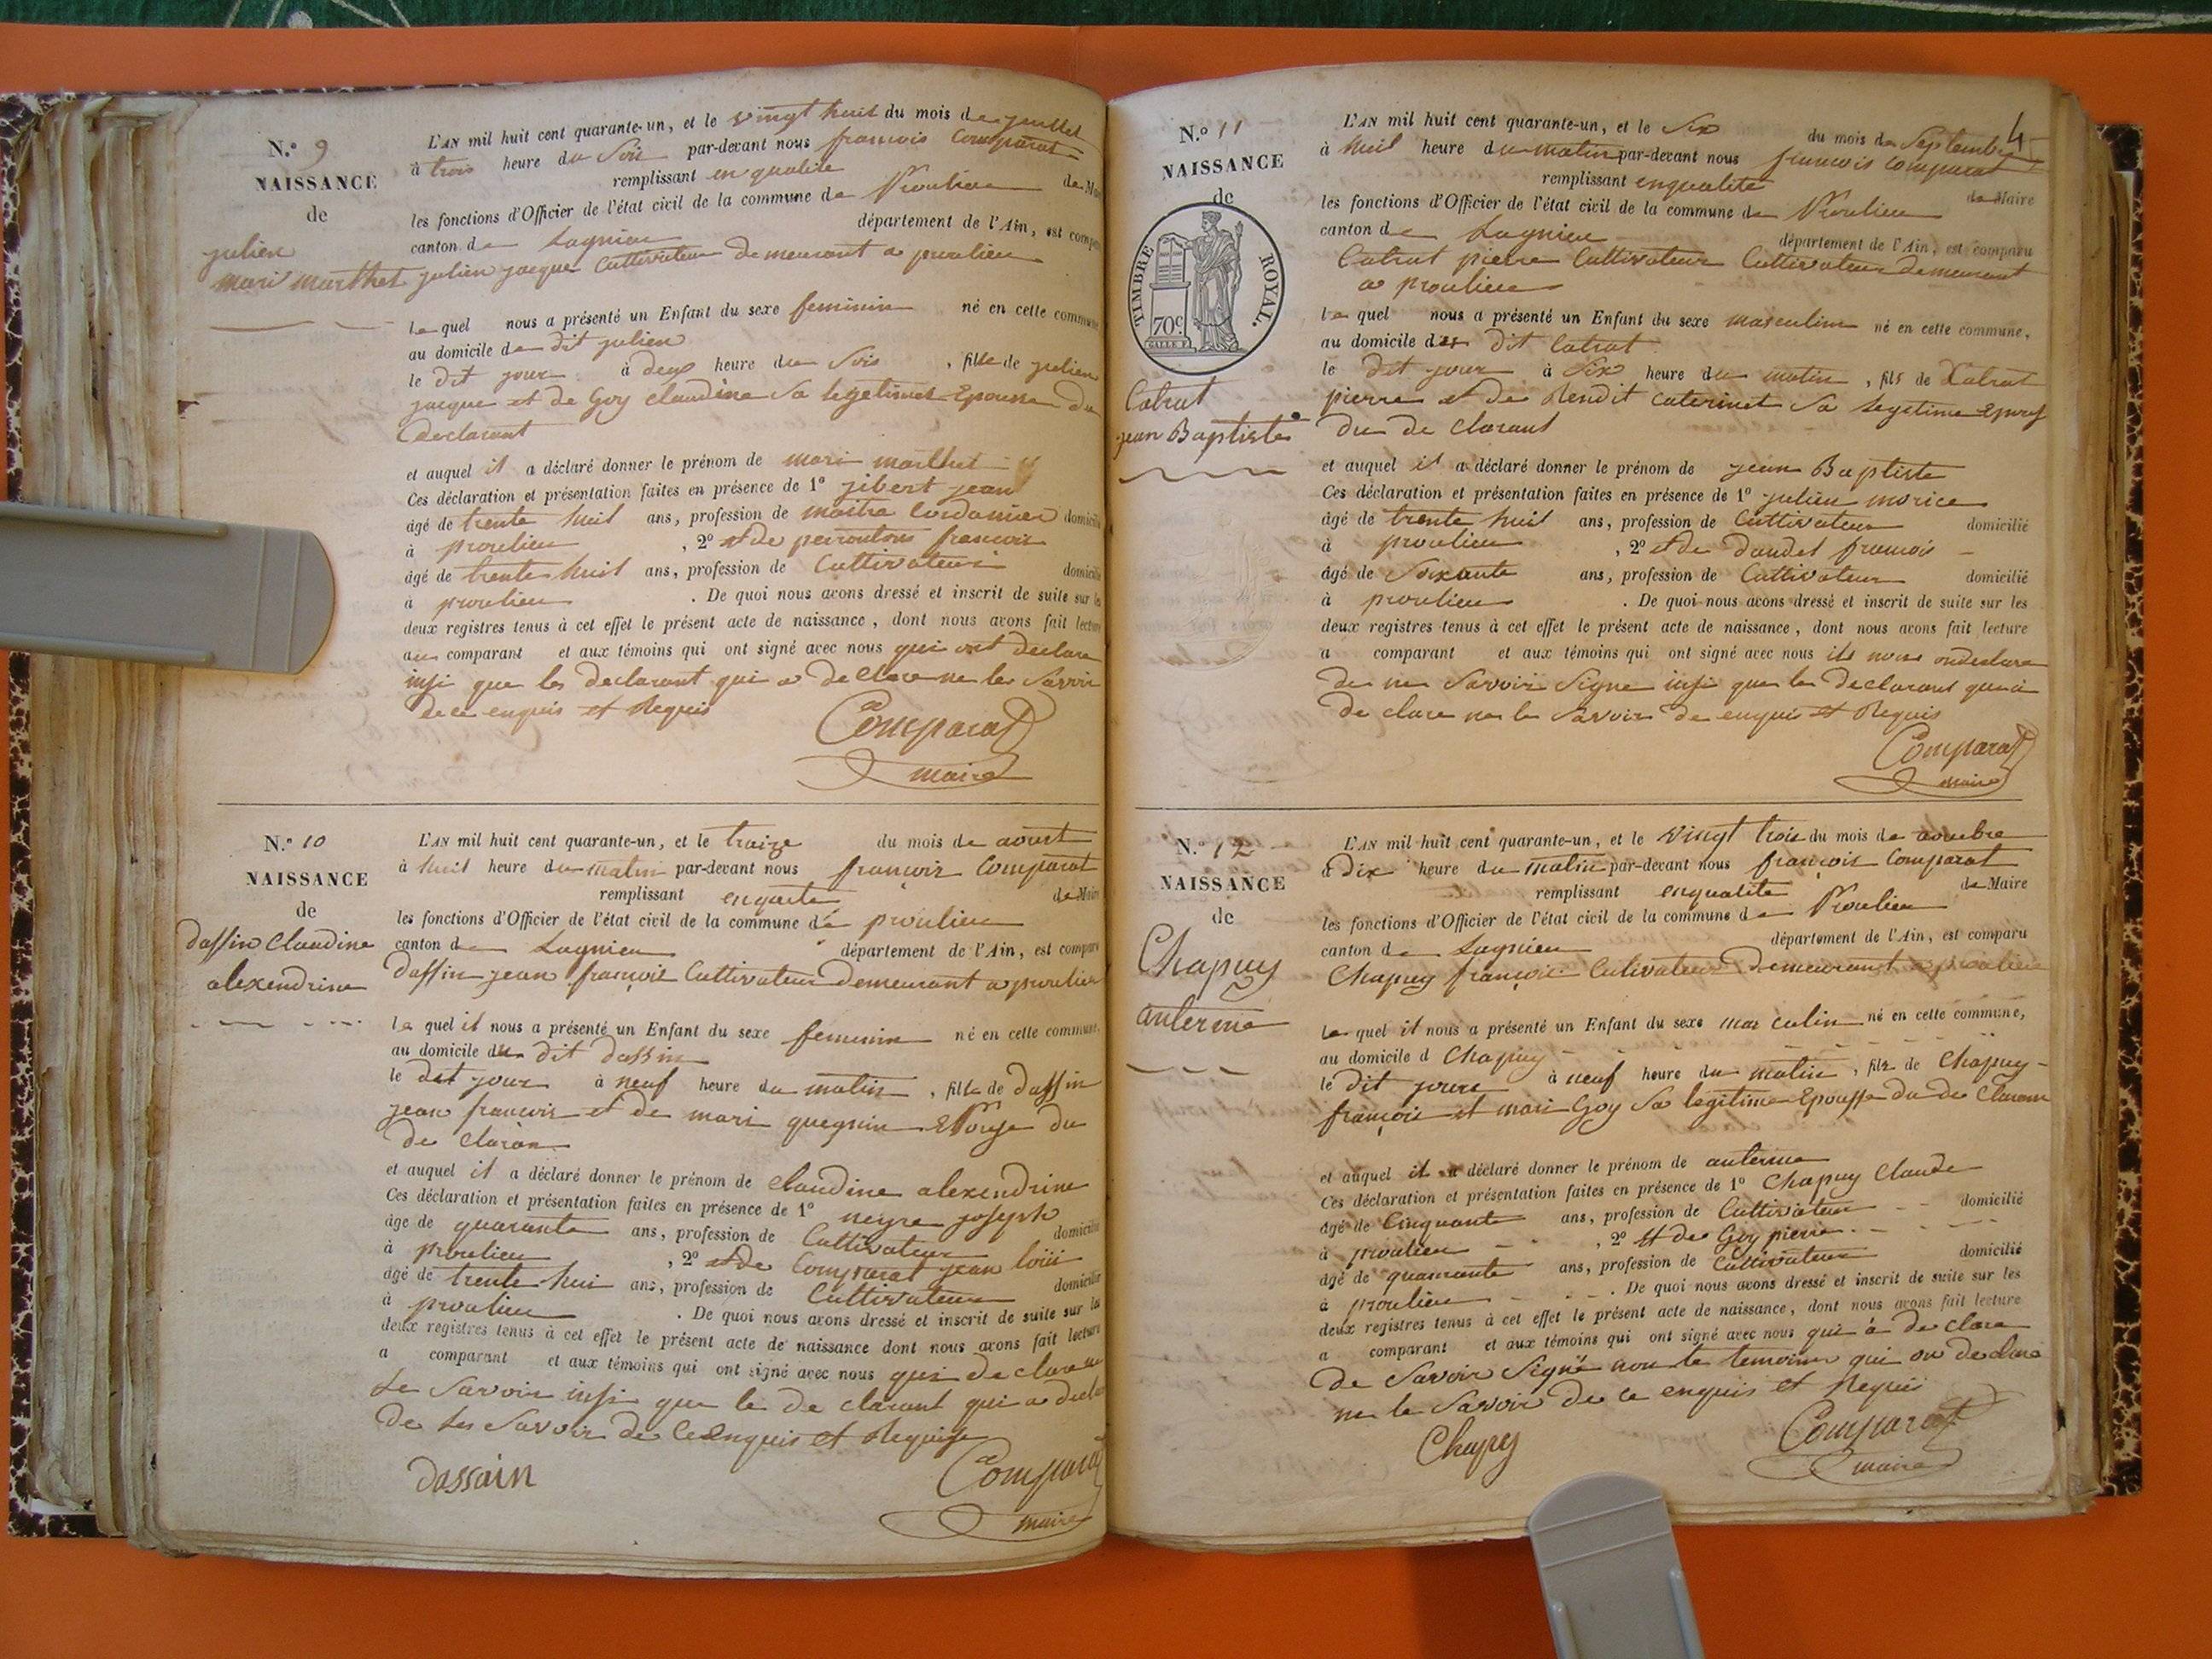 N.º 9
NAISSANCE
de
julien
mari marthet
L'AN mil huit cent quarante-un, et le vingt huit du mois de juillet
à trois heure du Soir par-devant nous francois Comparat
remplissant en qualite de Maire
les fonctions d'Officier de l'état civil de la commune de Proulieu
canton de Lagnieu département de l'Ain, est comparu
julien jacque Cultivateur demeurant a proulieu
le quel nous a présenté un Enfant du sexe feminin né en cette commune
au domicile de dit julien
le dit jour à deux heure du Soir, fille de julien
jacque et de Goy claudine Sa legetimet Epousse du
declarant
et auquel il a déclaré donner le prénom de mari marthet
Ces déclaration et présentation faites en présence de 1º jibert jean
âgé de trente huit ans, profession de maitre Cordonier domicilié
à proulieu, 2º et de perroutons francois
âgé de trente huit ans, profession de Cultivateur domicilié
à proulieu. De quoi nous avons dressé et inscrit de suite sur les
deux registres tenus à cet effet le présent acte de naissance, dont nous avons fait lecture
au comparant et aux témoins qui ont signé avec nous qui ont declare
insi que les declarant qui a declare ne les Savoir
de ce enquis et Requis
Comparat
maire
N.º 10
NAISSANCE
de
dassin Claudine
alexendrine
L'AN mil huit cent quarante-un, et le traize du mois de aoust
à huit heure du matin par-devant nous françois Comparat
remplissant de Maire
les fonctions d'Officier de l'état civil de la commune de proulieu
canton de Lagnieu département de l'Ain, est comparu
dassin jean françois Cultivateur demeurant a proulieu
le quel il nous a présenté un Enfant du sexe feminin né en cette commune.
au domicile du dit dassin
le dit jour à neuf heure du matin, fille de dassin
jean francois et de mari quegnin Epouse du
de claran
et auquel il a déclaré donner le prénom de claudine alexendrine
Ces déclaration et présentation faites en présence de 1º neyre joseph
âge de quarante ans, profession de Cultivateur domicilié
à proulieu, 2º et de Comparat jean loüi
âgé de trente hui ans, profession de Cultivateur domicilié
à proulieu. De quoi nous avons dressé et inscrit de suite sur les
deux registres tenus à cet effet le présent acte de naissance dont nous avons fait lecture
a comparant et aux témoins qui ont signé avec nous qui de clare ne
Le Savoir insi que le de clarant qui a
de Les Savoir de Ce enquis et Requise
dassain
Comparat
maire
4
N.º 11
NAISSANCE
de
TIMBRE ROYAL.
70c.
Catrat
jean Baptiste
L'AN mil huit cent quarante-un, et le Six du mois de Septembre
à huit heure du matin par-devant nous francois comparat
remplissant enqualite de Maire
les fonctions d'Officier de l'état civil de la commune de Proulieu
canton de Lagnieu département de l'Ain, est comparu
Catrat pierre Cultivateur Cultivateur demeurant
a proulieu
le quel nous a présenté un Enfant du sexe masculin né en cette commune,
au domicile du dit Catrat
le dit jour à Six heure du matin, fils de Catrat
pierre et de Rendit caterinet Sa legetime Epous
du de clarant
et auquel il a déclaré donner le prénom de jean Baptiste
Ces déclaration et présentation faites en présence de 1º julien morice
âgé de trente huit ans, profession de Cultivateur domicilié
à proulieu, 2º et de Dandet francois
âgé de Soixante ans, profession de Cultivateur domicilié
à proulieu. De quoi nous avons dressé et inscrit de suite sur les
deux registres tenus à cet effet le présent acte de naissance, dont nous avons fait lecture
a comparant et aux témoins qui ont signé avec nous ils nous ondeclare
de ne Savoir Signe insi que le declarant qui a
de clare ne le Savoir de enquis et Requis
Comparat
maire
N.º 12
NAISSANCE
de
Chapuy
anterme
L'AN mil huit cent quarante-un, et le vingt trois du mois de
à dix heure du matin par-devant nous françois Comparat
remplissant enqualite de Maire
les fonctions d'Officier de l'état civil de la commune de Proulieu
canton de Lagnieu département de l'Ain, est comparu
Chapuy françois Cultivateur Demeurant a proulieu
Le quel il nous a présenté un Enfant du sexe mas culin né en cette commune,
au domicile d Chapuy
le dit jour à neuf heure du matin, fils de Chapuy
françois et mari Goy Sa legitime Epousse du de Claran
et auquel il a déclaré donner le prénom de anterme
Ces déclaration et présentation faites en présence de 1º Chapuy Claude
âgé de Cinquante ans, profession de Cultivateur domicilié
à proulieu, 2º et de Goy pierre
âgé de quarante ans, profession de Cultivateur domicilié
à proulieu. De quoi nous avons dressé et inscrit de suite sur les
deux registres tenus à cet effet le présent acte de naissance, dont nous avons fait lecture
a comparant et aux témoins qui ont signé avec nous qui a de clare
de Savoir Signe non le temoine qui on declare
ne le Savoir de ce enquis et Requis
Chapuy
Comparat
maire